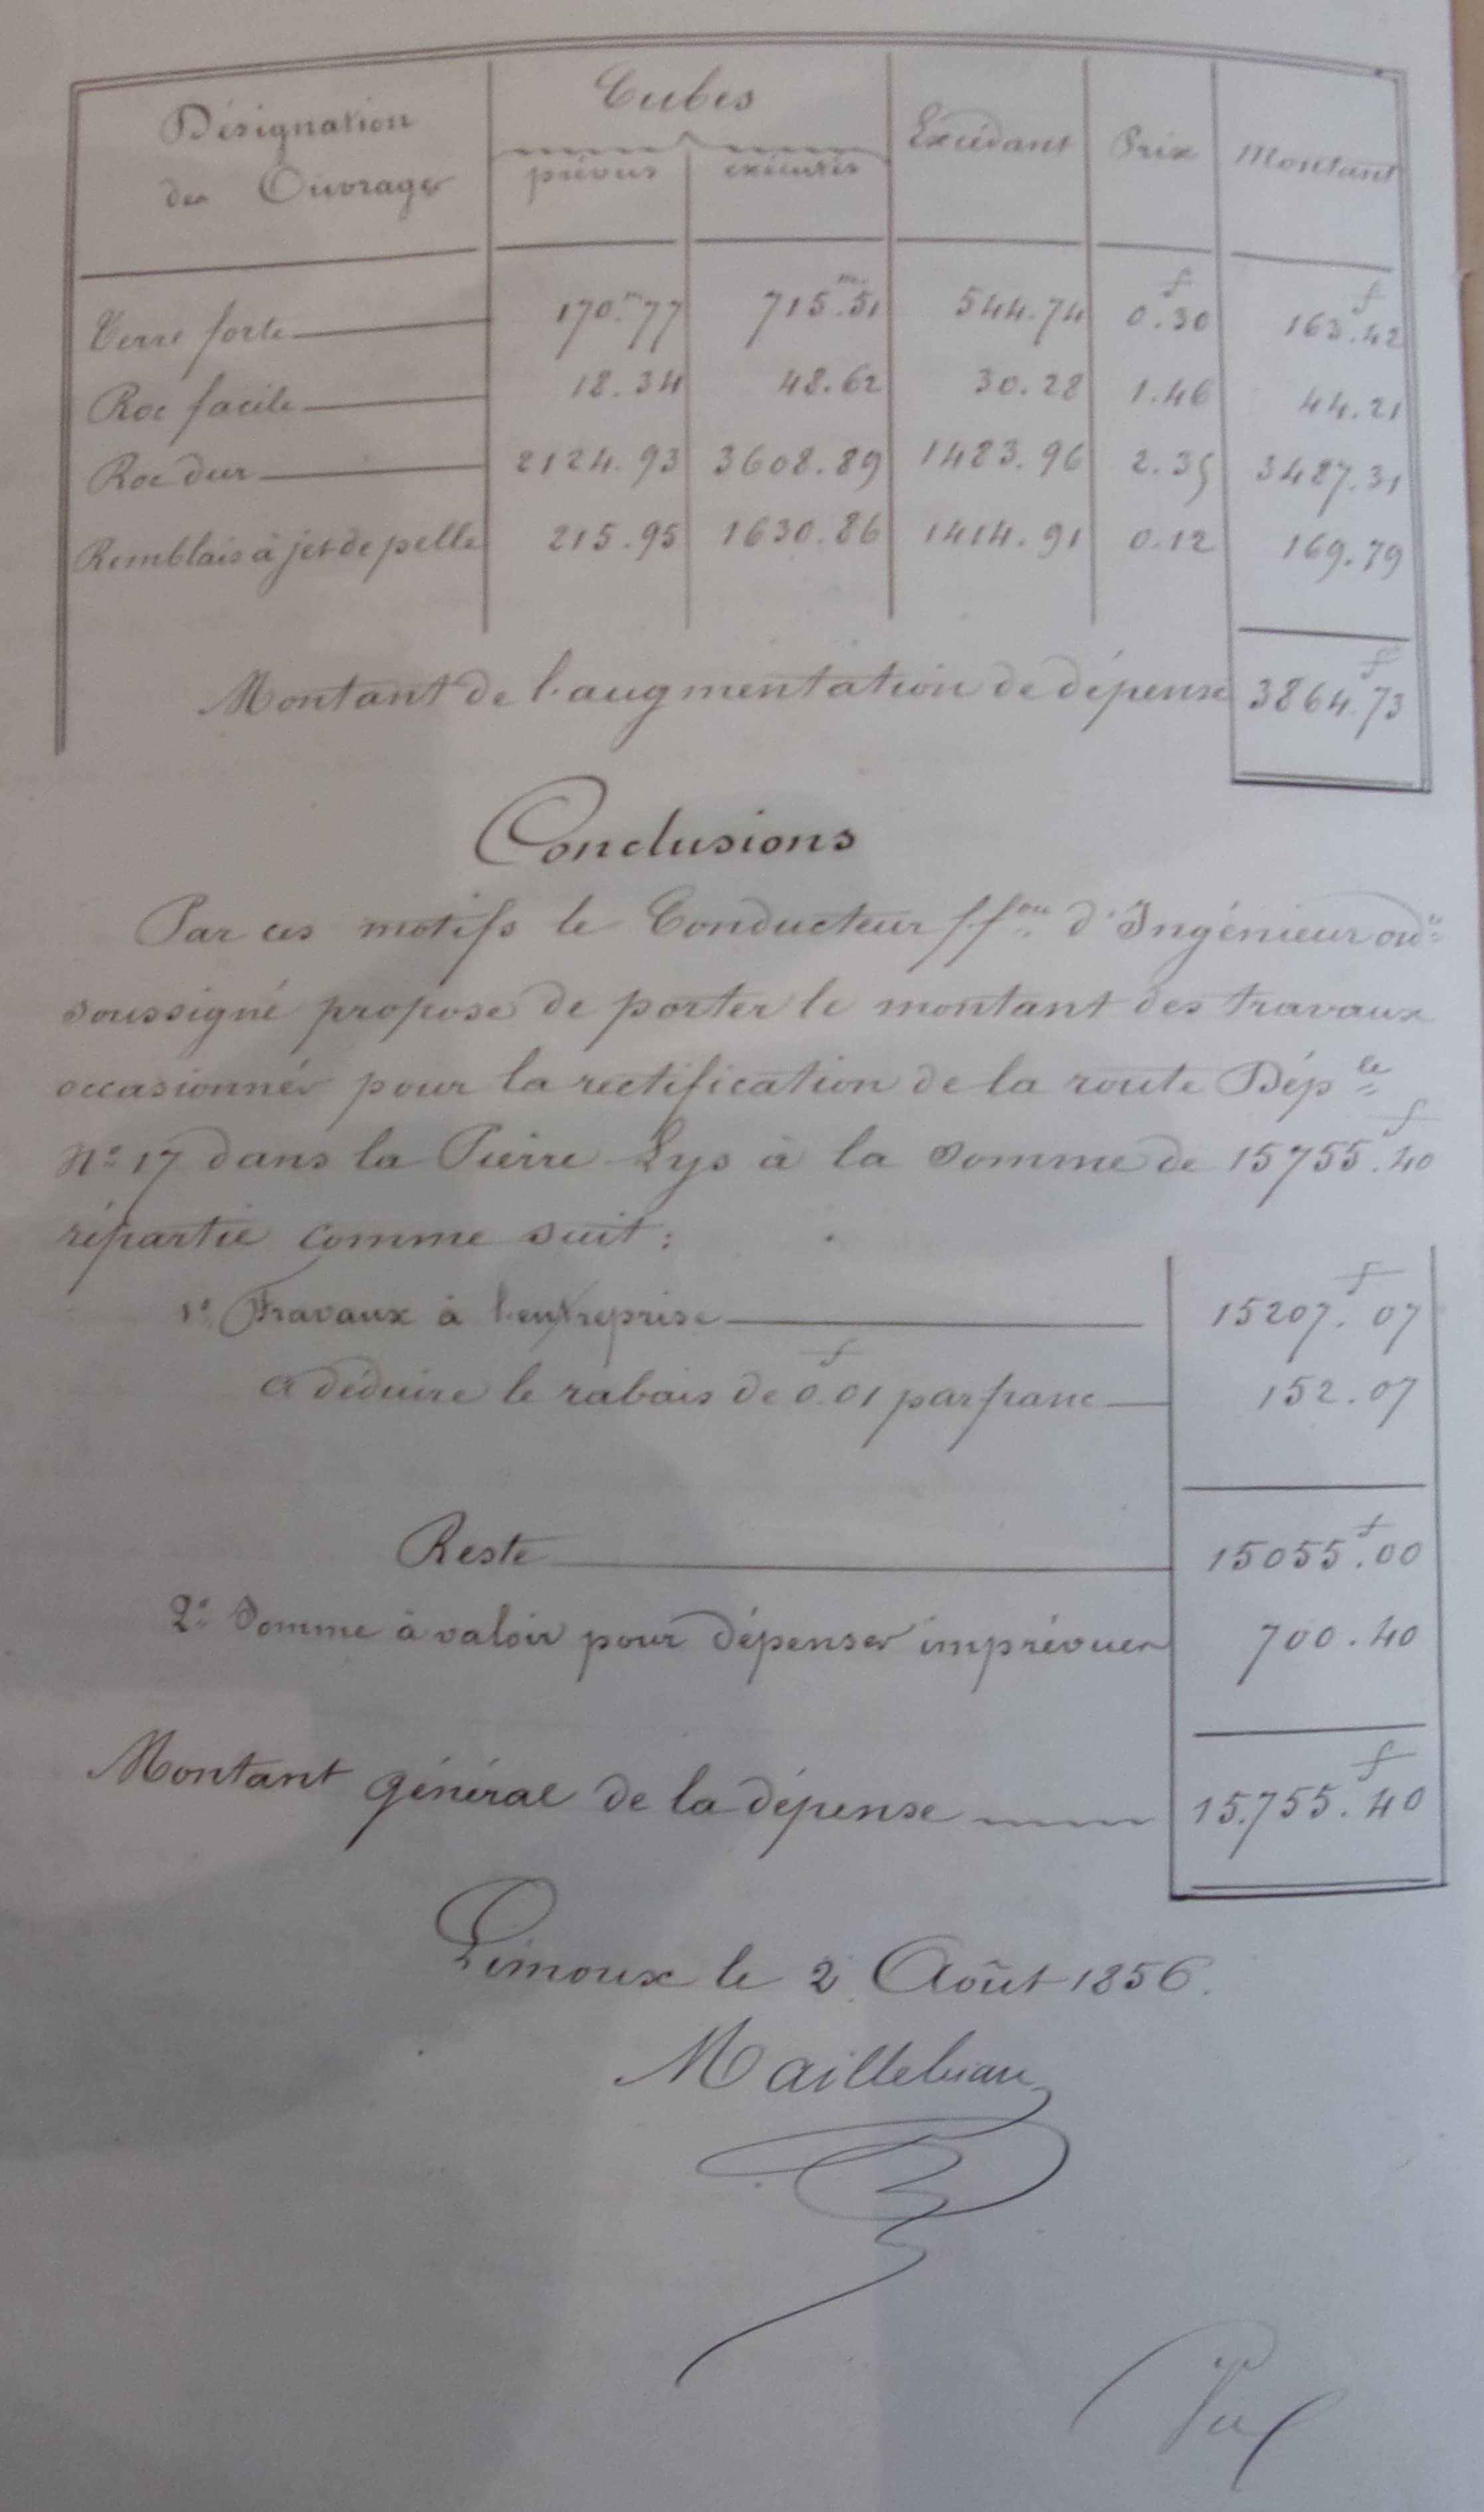 Désignation des Ouvrages | Cubes prévus | Cubes exécutés | Excédant | Prix | Montant
Terre forte | 170.m77 | 715.m51 | 544.74 | 0.f30 | 163.f42
Roc facile | 18.34 | 48.62 | 30.28 | 1.46 | 44.21
Roc dur | 2124.93 | 3608.89 | 1483.96 | 2.35 | 3487.31
Remblais à jet de pelle | 215.95 | 1630.86 | 1414.91 | 0.12 | 169.79
Montant de l'augmentation de dépense 3864.f73
Conclusions
Par ces motifs le Conducteur ff.on d'Ingénieur ord.re
soussigné propose de porter le montant des travaux
occasionnés pour la rectification de la route Dép.le
N.o 17 dans la Pierre Lys à la somme de 15755.f40
répartie comme suit :
1.o Travaux à l'entreprise 15207.f07
A déduire le rabais de 0.f01 par franc 152.07
Reste 15055.f00
2.o Somme à valoir pour dépenses imprévues 700.40
Montant général de la dépense 15.755.f40
Limoux le 2 Août 1856.